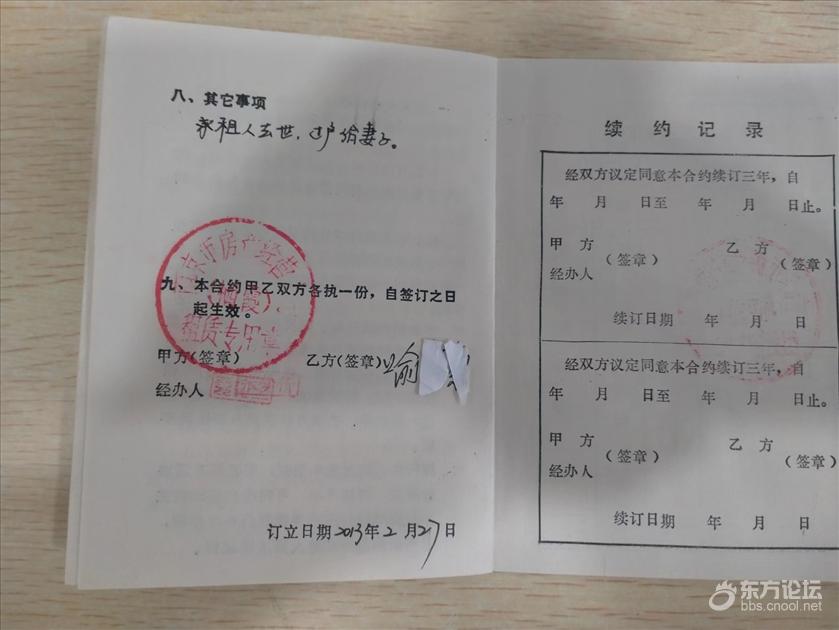 八、其它事项
承租人去世，过户给妻子。
九、本合约甲乙双方各执一份，自签订之日
起生效。
南京市房产经营
租赁专用章
甲方(签章) 乙方(签章) 喻
经办人
订立日期2013年2月27日
续约记录
经双方议定同意本合约续订三年，自
年 月 日至 年 月 日止。
甲方 (签章) 乙方 (签章)
经办人
续订日期 年 月 日
经双方议定同意本合约续订三年，自
年 月 日至 年 月 日止。
甲方 (签章) 乙方 (签章)
经办人
续订日期 年 月 日
东方论坛
bbs.cnool.net